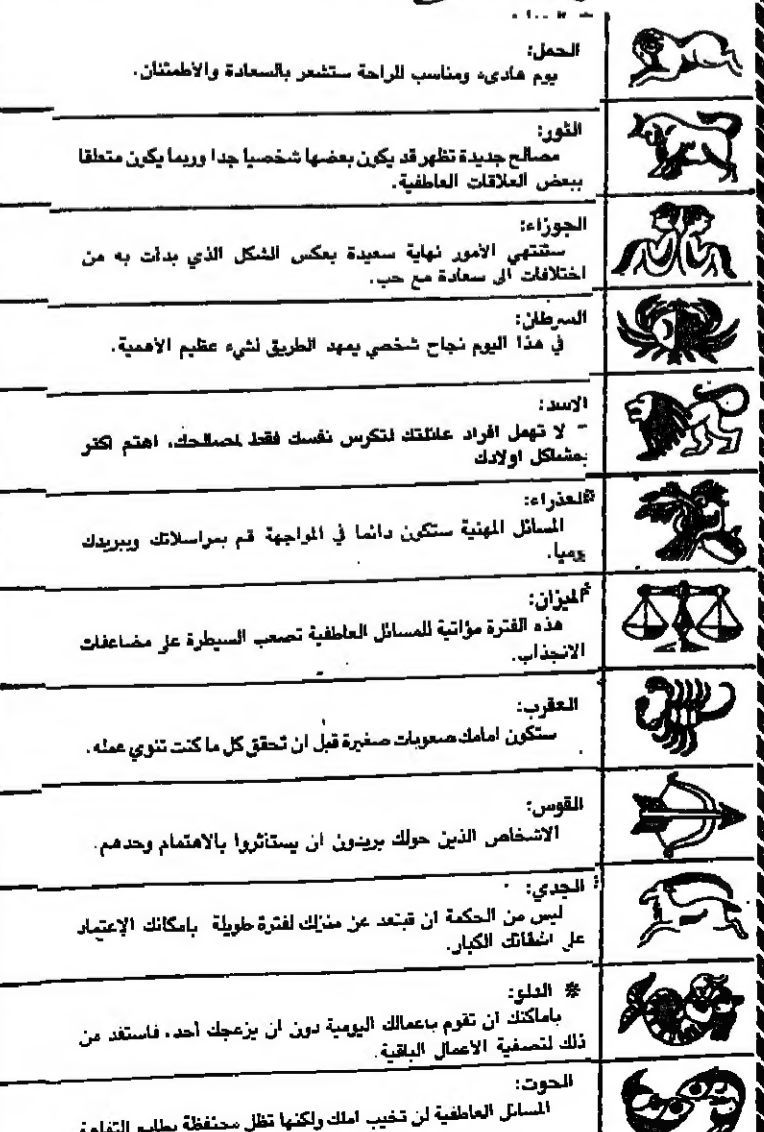 الحمل:
يوم هادىء ومناسب للراحة ستشعر بالسعادة والاطمئنان.
الثور:
مصالح جديدة تظهر قد يكون بعضها شخصيا جدا وربما يكون متعلقا
ببعض العلاقات العاطفية.
الجوزاء:
ستنتهي الأمور نهاية سعيدة بعكس الشكل الذي بدأت به من
اختلافات الى سعادة مع حب.
السرطان:
في هذا اليوم نجاح شخصي يمهد الطريق لشيء عظيم الأهمية.
الاسد:
لا تهمل افراد عائلتك لتكرس نفسك فقط لمصالحك، اهتم اكثر
بمشاكل اولادك
العذراء:
المسائل المهنية ستكون دائما في المواجهة قم بمراسلاتك وببريدك
يوميا.
الميزان:
هذه الفترة مؤاتية للمسائل العاطفية تصعب السيطرة على مضاعفات
الانجذاب.
العقرب:
ستكون امامك صعوبات صغيرة قبل ان تحقق كل ما كنت تنوي عمله.
القوس:
الاشخاص الذين حولك يريدون ان يستأثروا بالاهتمام وحدهم.
الجدي:
ليس من الحكمة ان تبتعد عن منزلك لفترة طويلة بامكانك الإعتماد
على اشقائك الكبار.
* الدلو:
باماكنك ان تقوم باعمالك اليومية دون ان يزعجك أحد، فاستفد من
ذلك لتصفية الأعمال الباقية.
الحوت:
المسائل العاطفية لن تخيب املك ولكنها تظل محتفظة بطابع